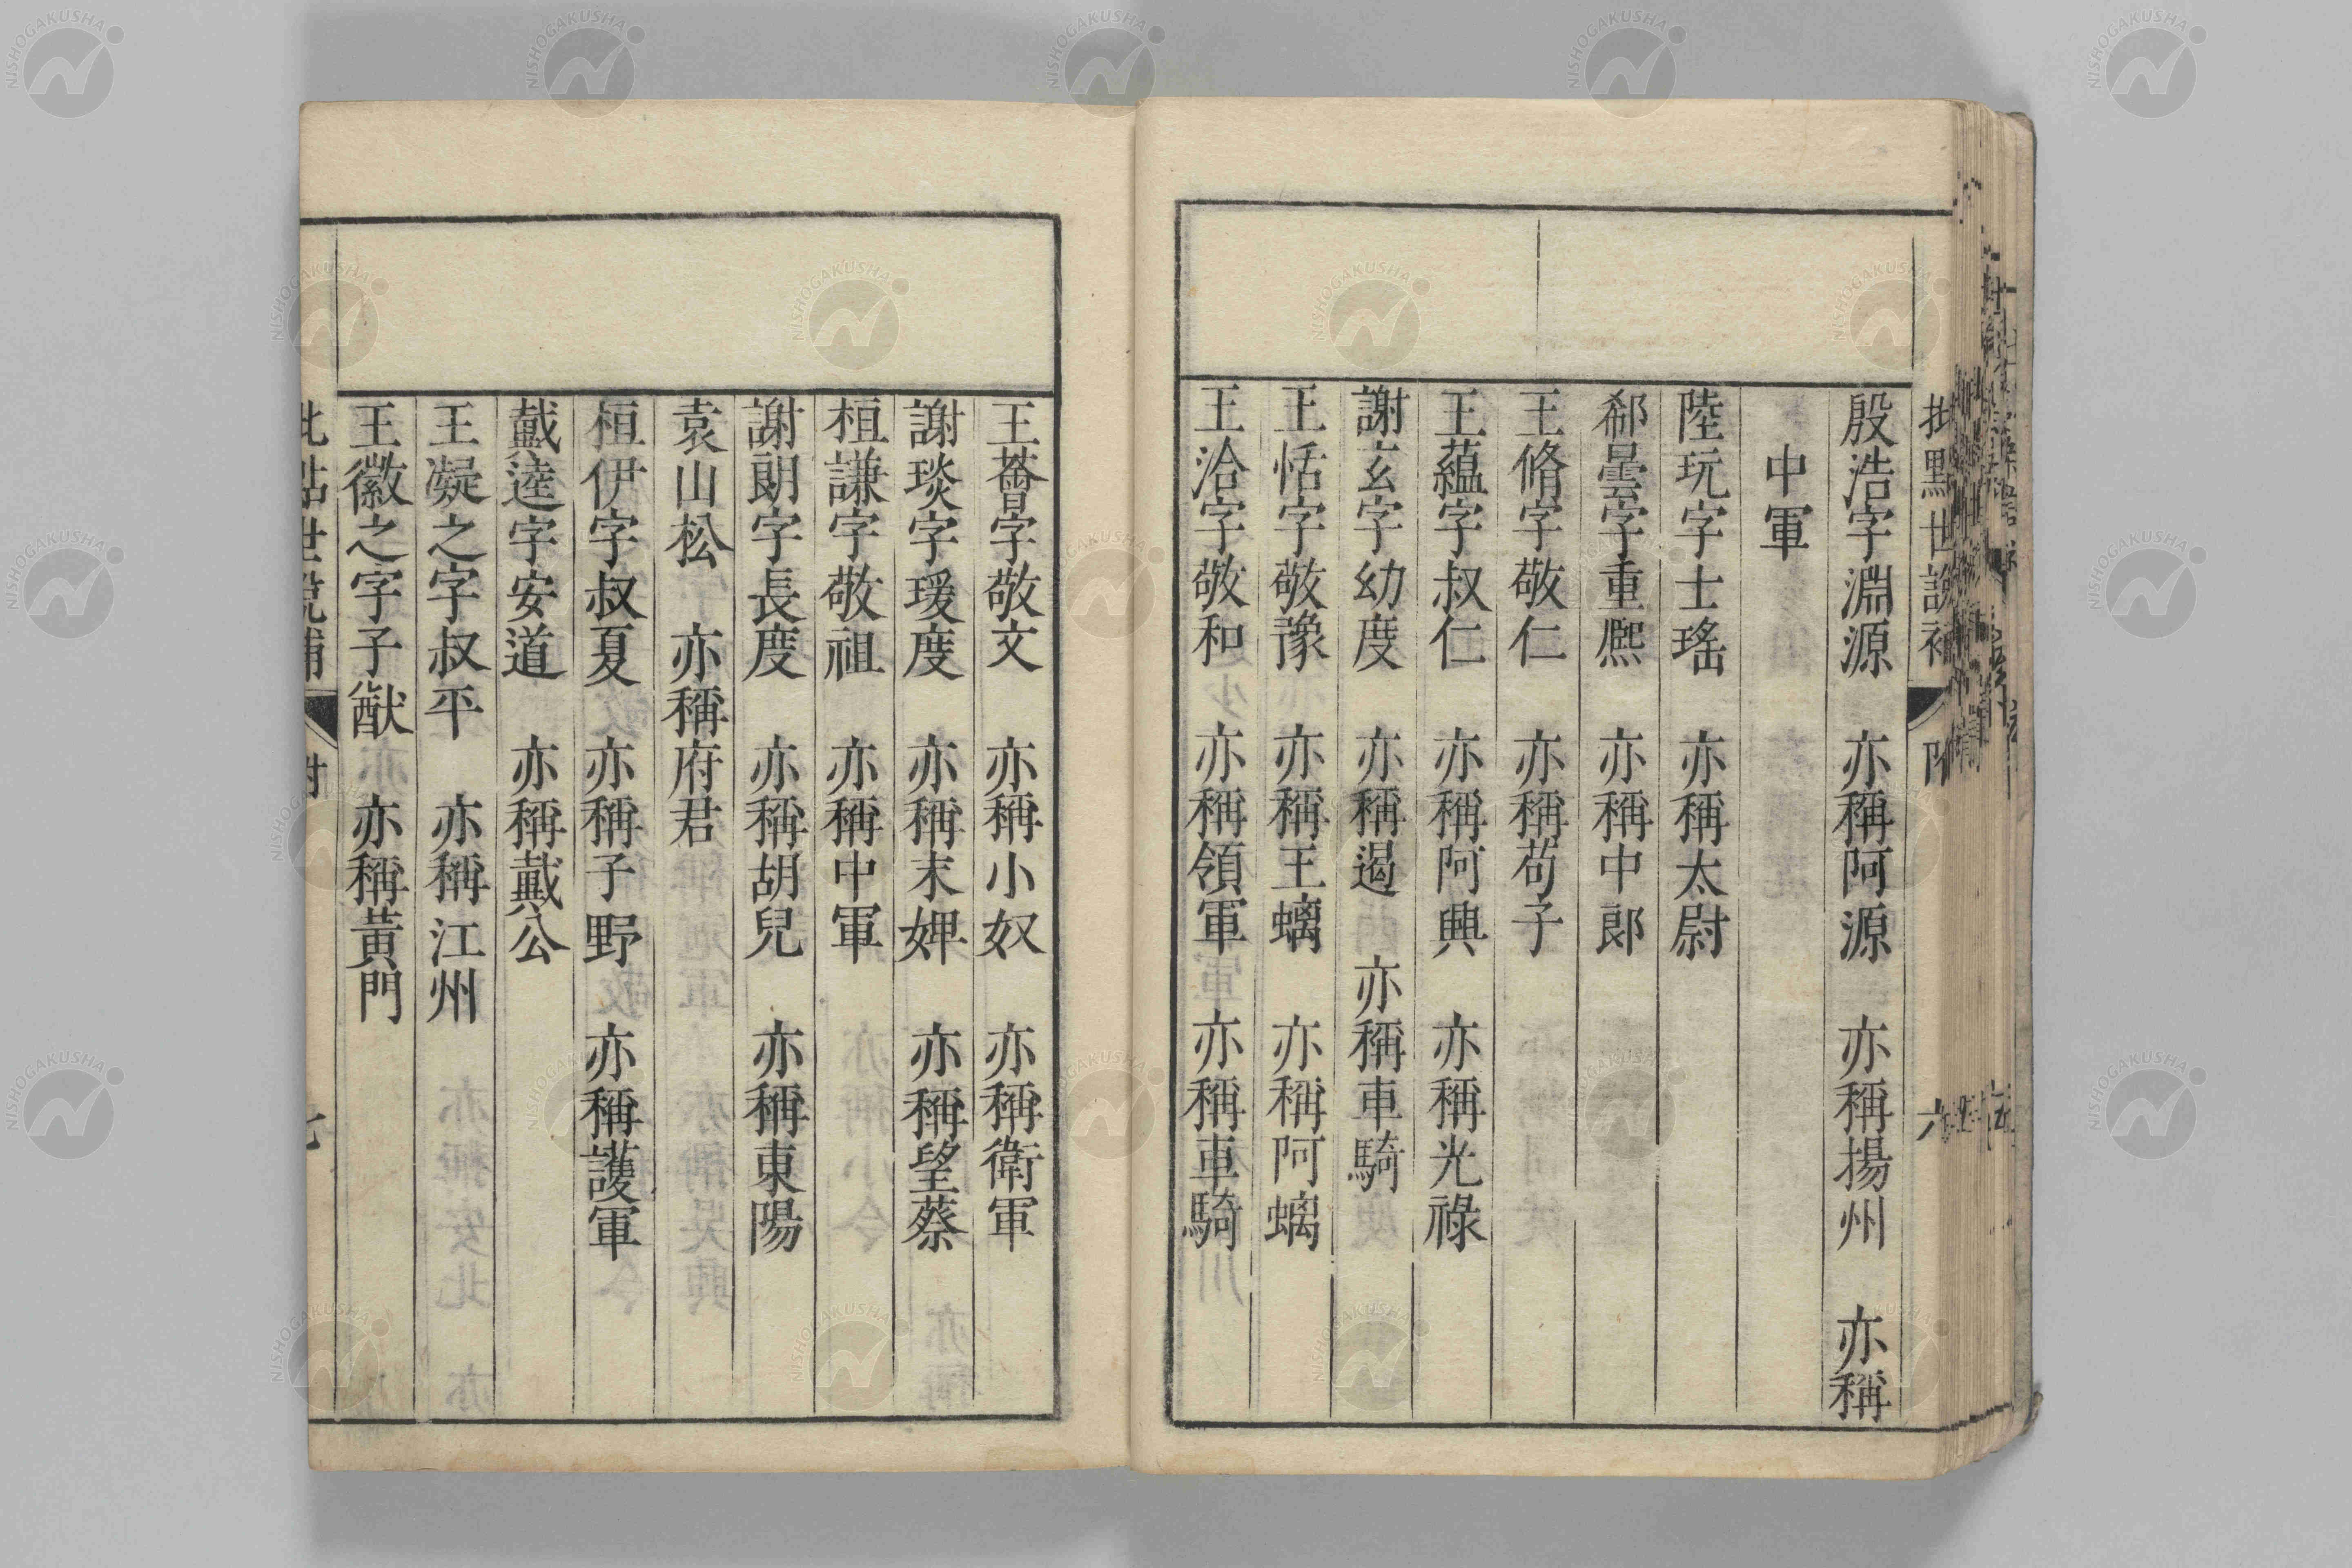 殷浩字淵源　亦稱阿源　亦稱揚州　亦稱
中軍
陸玩字士瑤　亦稱太尉
郗曇字重熈　亦稱中郎
王脩字敬仁　亦稱苟子
王蘊字叔仁　亦稱阿興　亦稱光祿
謝玄字幼度　亦稱遏　亦稱車騎
王恬字敬豫　亦稱王螭　亦稱阿螭
王洽字敬和　亦稱領軍　亦稱車騎
王薈字敬文　亦稱小奴　亦稱衛軍
謝琰字瑗度　亦稱末婢　亦稱望蔡
桓謙字敬祖　亦稱中軍
謝朗字長度　亦稱胡兒　亦稱東陽
袁山松　亦稱府君
桓伊字叔夏　亦稱子野　亦稱護軍
戴逵字安道　亦稱戴公
王凝之字叔平　亦稱江州
王徽之字子猷　亦稱黃門
批點世說補　附　七
NISHOGAKUSHA